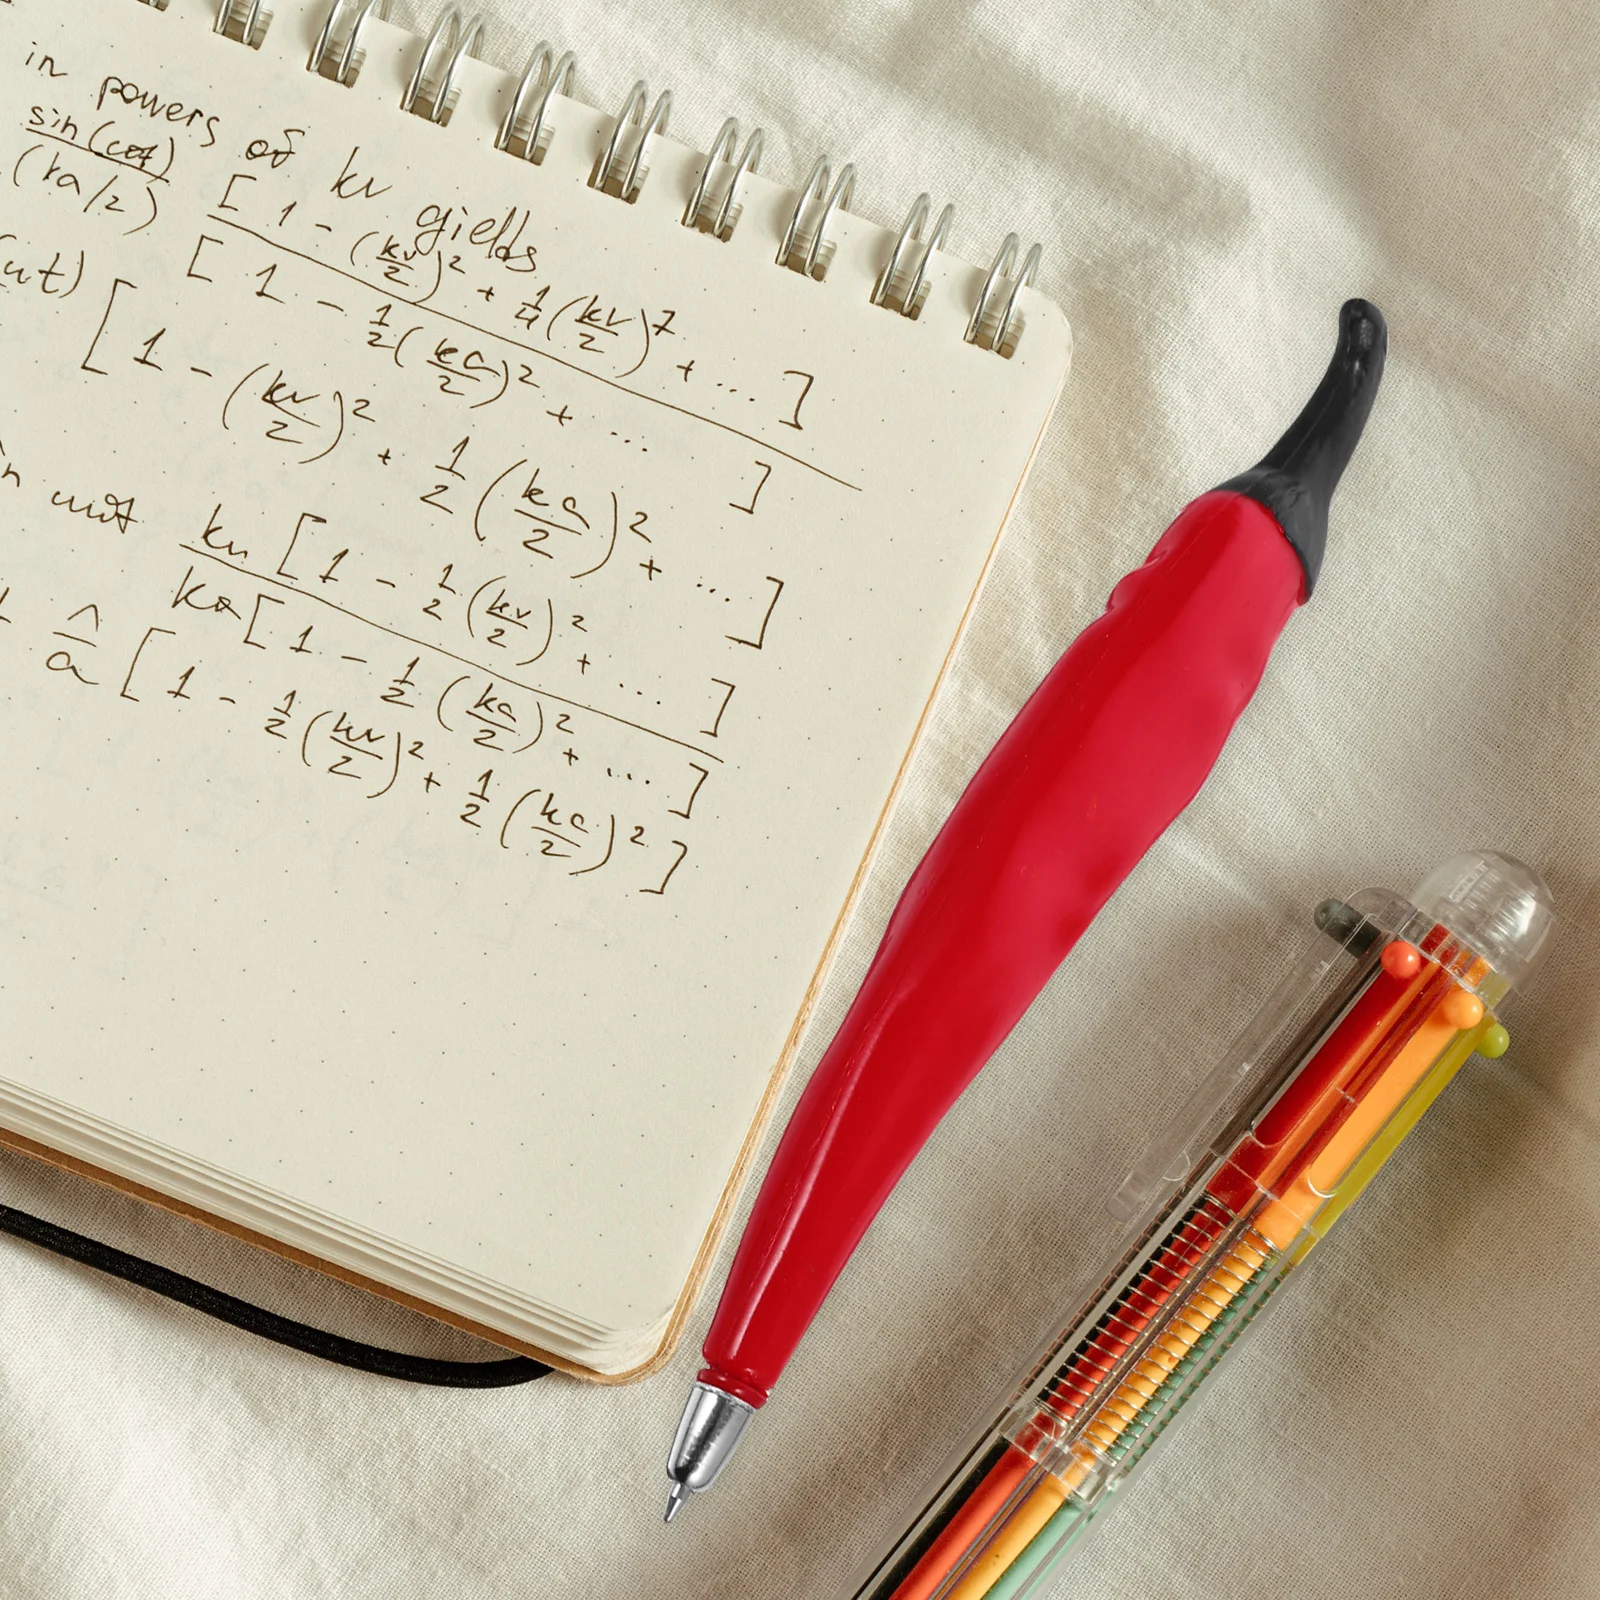 in powers of kv yields
sin(cot) / (ka/2) [1 - (kv/2)² + 1/4 (kv/2)⁷ + ...] / [1 - 1/2 (ka/2)² + ... ]
ωt) [1 - (kv/2)² + 1/2 (ka/2)² + ...]
kv [1 - 1/2 (kv/2)² + ...] / ka [1 - 1/2 (ka/2)² + ...]
^/a [1 - 1/2 (kv/2)² + 1/2 (ka/2)²]